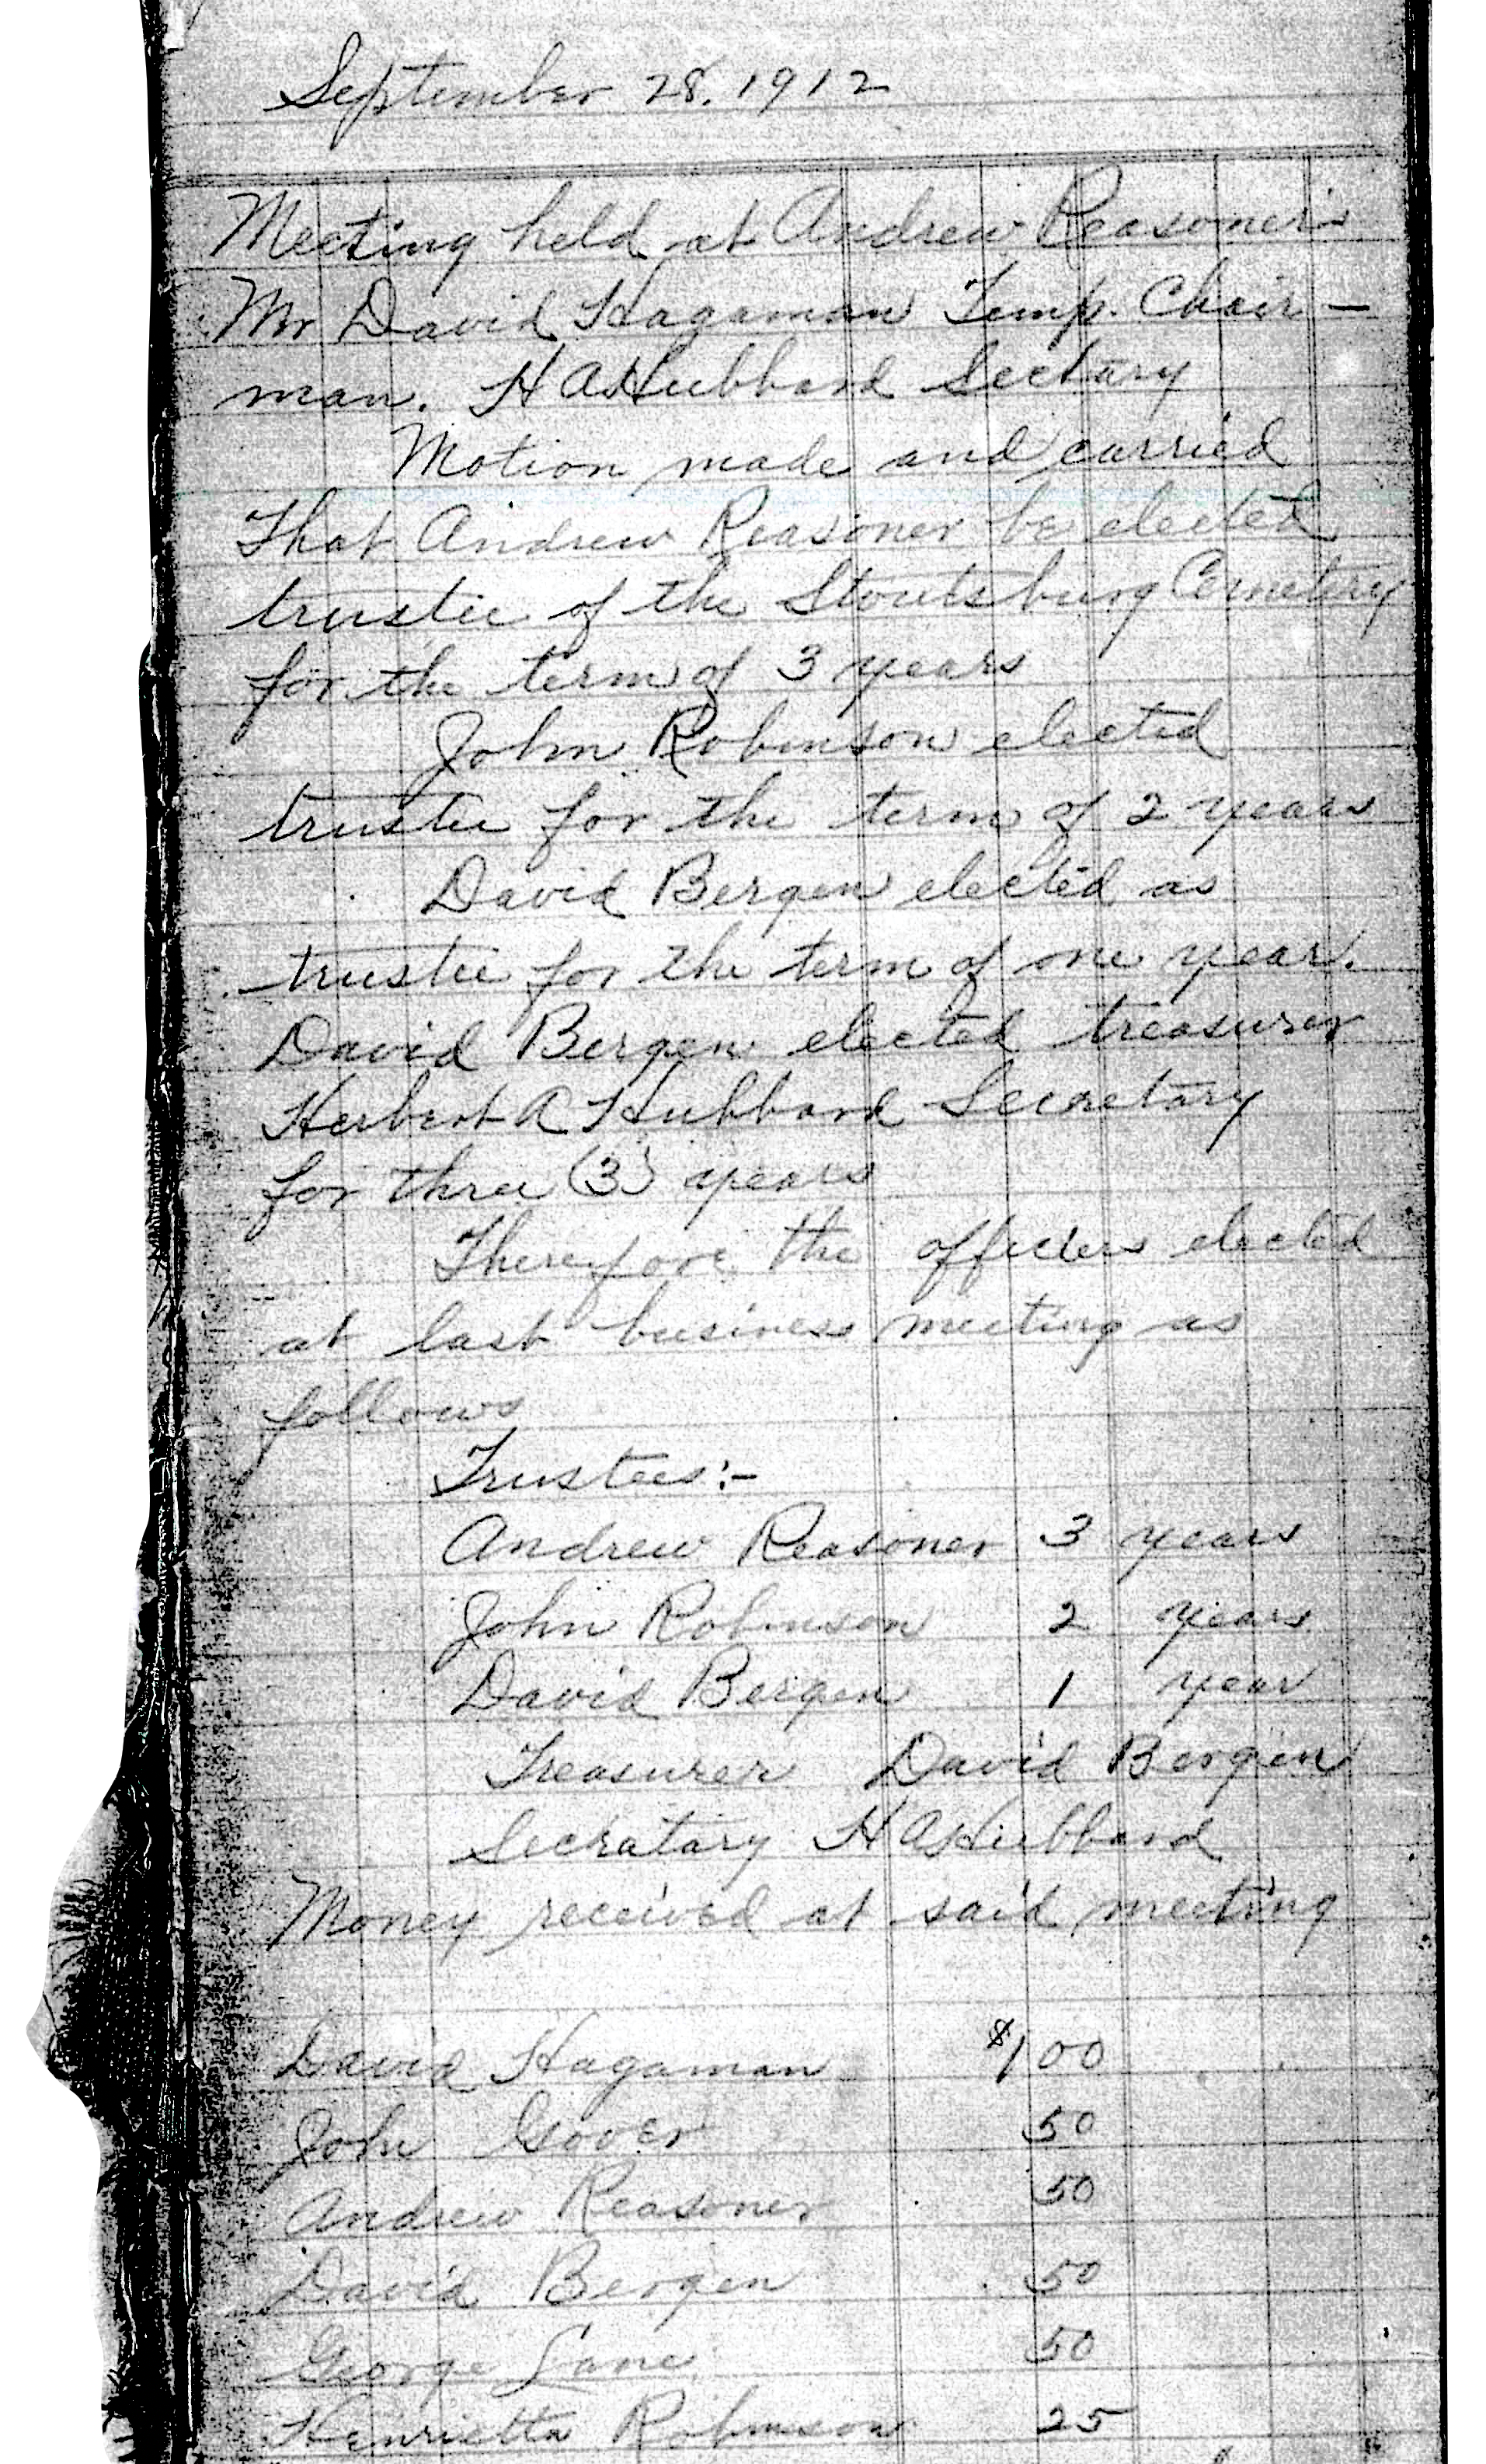 September 28. 1912
Meeting held at Andrew Reasoner's
Mr David Hagaman Temp. Chair-
man. H A Hubbard Sectary
Motion made and carried
That Andrew Reasoner be elected
trustee of the Stoutsburg Cemetary
for the term of 3 years
John Robinson elected
trustee for the term of 2 years
David Bergen elected as
trustee for the term of one year.
David Bergen elected treasurer
Herbert A Hubbard Secretary
for three (3) years
Therefore the officers elected
at last business meeting as
follows
Trustees:-
Andrew Reasoner 3 years
John Robinson 2 years
David Bergen 1 year
Treasurer David Bergen
Secratary H A Hubbard
Money received at said meeting
David Hagaman $1 00
John Gover 50
Andrew Reasoner 50
David Bergen 50
George Lane 50
Henrietta Robinson 25